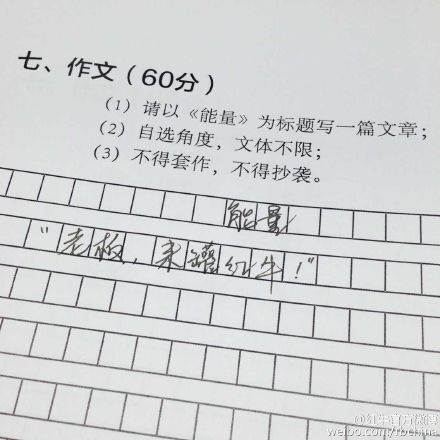 七、作文（60分）
（1）请以《能量》为标题写一篇文章；
（2）自选角度，文体不限；
（3）不得套作，不得抄袭。
能量
“老板，来罐红牛！”
@红牛官方微博
weibo.com/rbchina